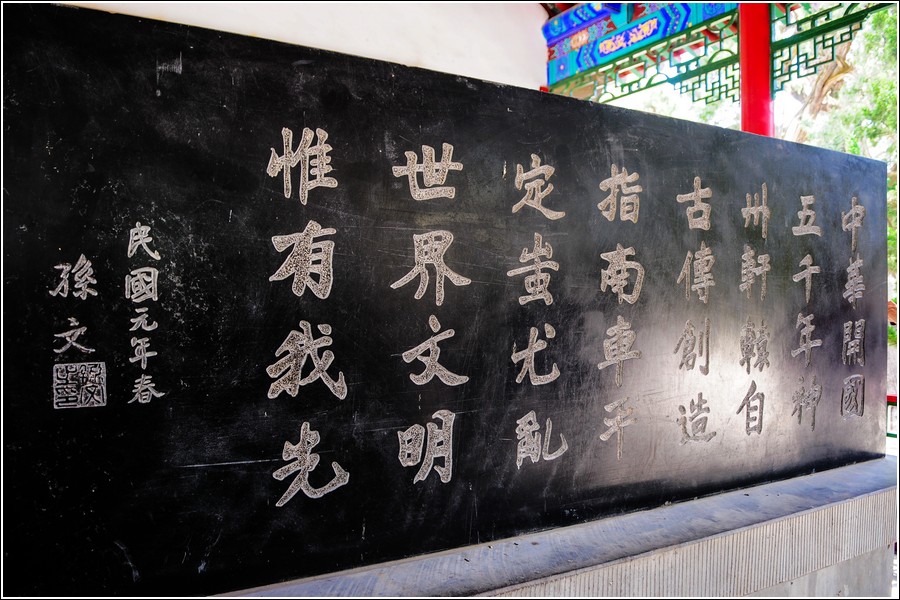 中華開國
五千年神
州軒轅自
古傳創造
指南車平
定蚩尤亂
世界文明
惟有我先
民國元年春
孫文